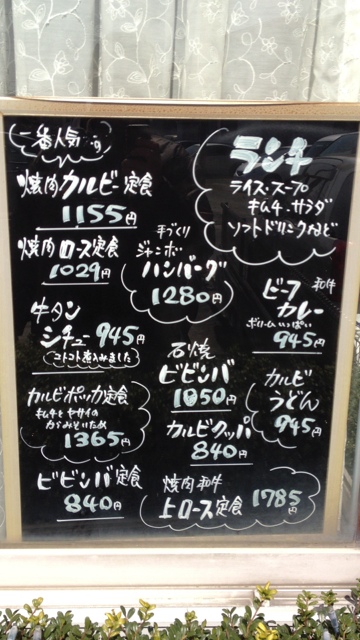 一番人気
焼肉カルビー定食
1,155円
焼肉ロース定食
1029円
牛タン
シチュー 945円
コトコト煮こみました
カルビポッカ定食
キムチとヤサイの
からみそいため
1365円
ビビンバ定食
840円
ランチ
ライス・スープ
キムチ・サラダ
ソフトドリンクなど
手づくり
ジャンボ
ハンバーグ
1280円
ビーフ 和牛
カレー
ボリュームいっぱい
945円
石焼
ビビンバ
1050円
カルビクッパ
840円
カルビ
うどん
945円
焼肉 和牛
上ロース定食 1785円